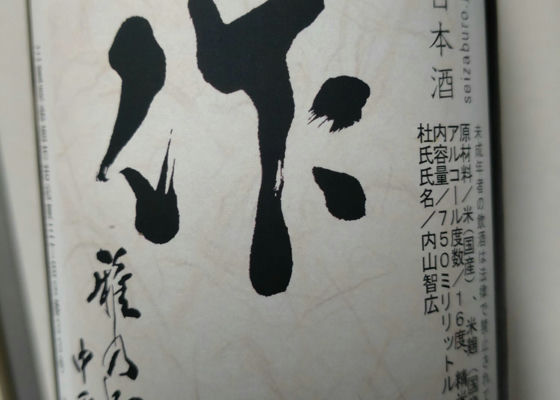 日本酒
未成年者の飲酒は法律で禁止されて
原材料/米(国産)、米麹(国
アルコール度数/16度 精米
内容量/750ミリリットル
杜氏氏名/内山智広
作
雅乃
中